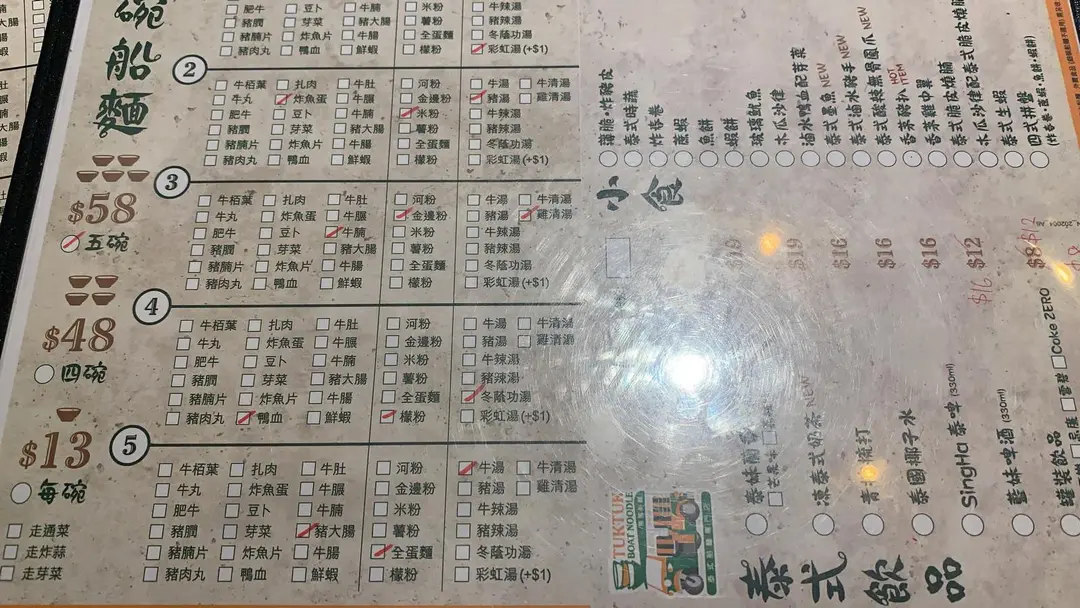 碗
船
麵
$58
五碗
$48
四碗
$13
每碗
走通菜
走炸蒜
走芽菜
肥牛 豆卜 牛腩 米粉 牛辣湯
豬膶 芽菜 豬大腸 薯粉 豬辣湯
豬腩片 炸魚片 牛腸 全蛋麵 冬蔭功湯
豬肉丸 鴨血 鮮蝦 檬粉 彩虹湯(+$1)
2
牛栢葉 扎肉 牛肚 河粉 牛湯 牛清湯
牛丸 炸魚蛋 牛𦟌 金邊粉 豬湯 雞清湯
肥牛 豆卜 牛腩 米粉 牛辣湯
豬膶 芽菜 豬大腸 薯粉 豬辣湯
豬腩片 炸魚片 牛腸 全蛋麵 冬蔭功湯
豬肉丸 鴨血 鮮蝦 檬粉 彩虹湯(+$1)
3
牛栢葉 扎肉 牛肚 河粉 牛湯 牛清湯
牛丸 炸魚蛋 牛𦟌 金邊粉 豬湯 雞清湯
肥牛 豆卜 牛腩 米粉 牛辣湯
豬膶 芽菜 豬大腸 薯粉 豬辣湯
豬腩片 炸魚片 牛腸 全蛋麵 冬蔭功湯
豬肉丸 鴨血 鮮蝦 檬粉 彩虹湯(+$1)
4
牛栢葉 扎肉 牛肚 河粉 牛湯 牛清湯
牛丸 炸魚蛋 牛𦟌 金邊粉 豬湯 雞清湯
肥牛 豆卜 牛腩 米粉 牛辣湯
豬膶 芽菜 豬大腸 薯粉 豬辣湯
豬腩片 炸魚片 牛腸 全蛋麵 冬蔭功湯
豬肉丸 鴨血 鮮蝦 檬粉 彩虹湯(+$1)
5
牛栢葉 扎肉 牛肚 河粉 牛湯 牛清湯
牛丸 炸魚蛋 牛𦟌 金邊粉 豬湯 雞清湯
肥牛 豆卜 牛腩 米粉 牛辣湯
豬膶 芽菜 豬大腸 薯粉 豬辣湯
豬腩片 炸魚片 牛腸 全蛋麵 冬蔭功湯
豬肉丸 鴨血 鮮蝦 檬粉 彩虹湯(+$1)
小食
薄脆·炸豬皮
泰式時蔬
炸春卷
蝦餅
魚餅
玻璃魷魚
木瓜沙律
滷水鴨血配芽菜
泰式墨魚 NEW
泰式滷水豬手 NEW
泰式酸辣無骨鳳爪 NEW
香茅豬扒 HOT ITEM
香茅雞中翼
泰式脆皮燒腩
木瓜沙律配泰式脆皮燒腩
泰式生蝦
四式拼盤
泰式飲品
凍泰式奶茶 NEW $19
$16
泰國椰子水 $16
SingHa 泰啤 (330ml) $16
藍妹啤酒 (330ml) $12
$16
罐裝飲品 $8
$12
Coke ZERO
TUKTUK
BOAT NOODLE
泰式船麵專門店